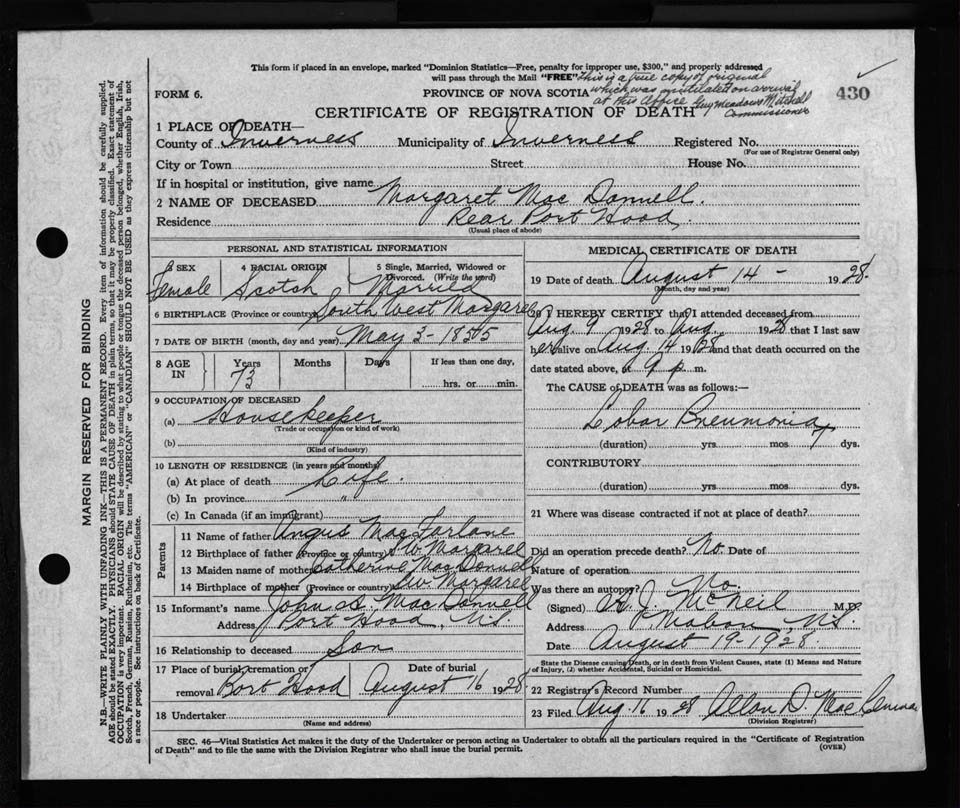 This form if placed in an envelope, marked "Dominion Statistics—Free, penalty for improper use, $300," and properly addressed
will pass through the Mail "FREE"
This is a true copy of original
which was mutilated on arrival
at this office Guy Meadows Mitchell
Commissioner
430
FORM 6.
PROVINCE OF NOVA SCOTIA
CERTIFICATE OF REGISTRATION OF DEATH
1 PLACE OF DEATH—
County of Inverness Municipality of Inverness Registered No.
(For use of Registrar General only)
City or Town Street House No.
If in hospital or institution, give name
2 NAME OF DECEASED Margaret Mac Donnell.
Residence Rear Port Hood,
(Usual place of abode)
PERSONAL AND STATISTICAL INFORMATION
3 SEX 4 RACIAL ORIGIN 5 Single, Married, Widowed or
Divorced. (Write the word)
Female Scotch Married
6 BIRTHPLACE (Province or country) South West Margaree
7 DATE OF BIRTH (month, day and year) May 3-1855
8 AGE IN Years Months Days If less than one day,
73 hrs. or min.
9 OCCUPATION OF DECEASED
(a) Housekeeper
(Trade or occupation or kind of work)
(b)
(Kind of industry)
10 LENGTH OF RESIDENCE (in years and months)
(a) At place of death Life.
(b) In province "
(c) In Canada (if an immigrant)
Parents
11 Name of father Angus MacFarlane
12 Birthplace of father (Province or country) S.W. Margaree
13 Maiden name of mother Catherine MacDonnell
14 Birthplace of mother (Province or country) S.W. Margaree
15 Informant's name John S. MacDonnell
Address Port Hood, N.S.
16 Relationship to deceased Son
17 Place of burial, cremation or Date of burial
removal Port Hood August 16 1928.
18 Undertaker
(Name and address)
MEDICAL CERTIFICATE OF DEATH
19 Date of death August 14 - 1928.
(Month, day and year)
20 I HEREBY CERTIFY that I attended deceased from
Aug. 9 1928 to Aug. 1928 that I last saw
her alive on Aug. 14 1928 and that death occurred on the
date stated above, at 9 p. m.
The CAUSE of DEATH was as follows:—
Lobar Pneumonia
(duration) yrs. mos. 7 dys.
CONTRIBUTORY
(duration) yrs. mos. dys.
21 Where was disease contracted if not at place of death?
Did an operation precede death? No. Date of
Nature of operation
Was there an autopsy? No.
(Signed) A J McNeil M.D.
Address Mabou, N.S.
Date August 19-1928.
State the Disease causing Death, or in death from Violent Causes, state (1) Means and Nature
of Injury, (2) whether Accidental, Suicidal or Homicidal.
22 Registrar's Record Number
23 Filed Aug. 16 1928 Allan D.
(Division Registrar)
SEC. 46—Vital Statistics Act makes it the duty of the Undertaker or person acting as Undertaker to obtain all the particulars required in the "Certificate of Registration
of Death" and to file the same with the Division Registrar who shall issue the burial permit. (OVER)
MARGIN RESERVED FOR BINDING
N.B.—WRITE PLAINLY WITH UNFADING INK—THIS IS A PERMANENT RECORD. Every item of information should be carefully supplied.
AGE should be stated EXACTLY. PHYSICIANS should STATE CAUSE OF DEATH in plain terms, so that it may be properly classified. Exact statement of
OCCUPATION is very important. RACIAL ORIGIN will be described by stating to what people or tongue the deceased person belonged, whether English, Irish,
Scotch, French, German, Russian, Ruthenian, etc. The terms "AMERICAN" or "CANADIAN" SHOULD NOT BE USED as they express citizenship but not
a race or people. See instructions on back of Certificate.